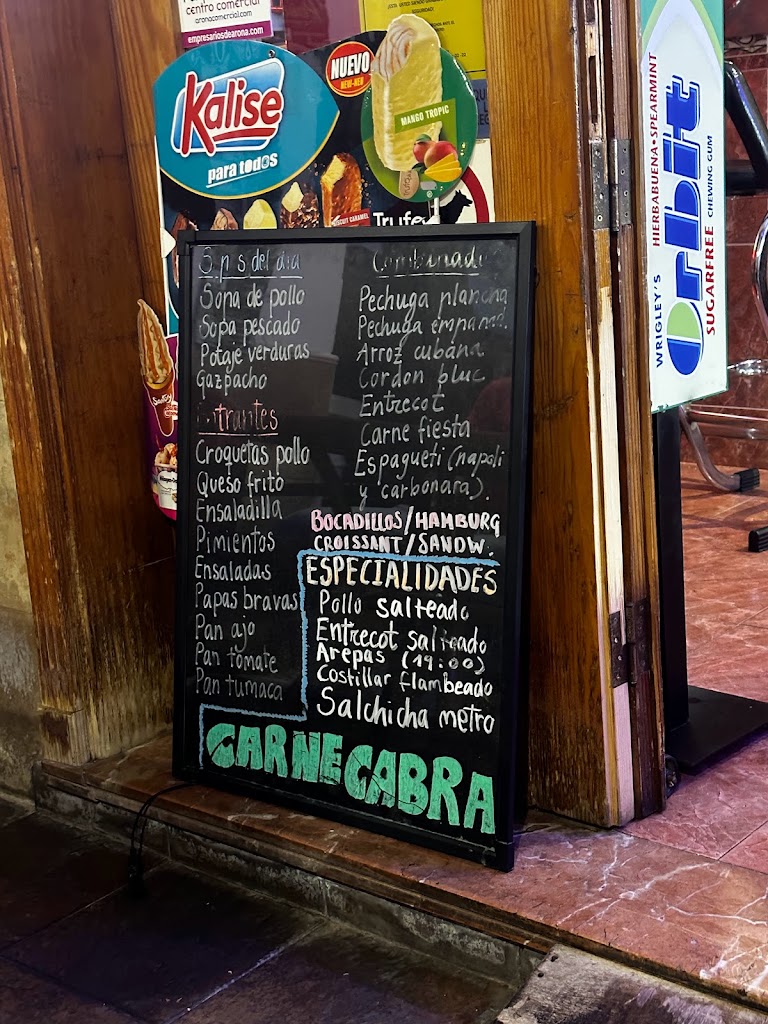 centro comercial
aronacomercial.com
empresariosdearona.com
Kalise
para todos
NUEVO
NEW-NEU
MANGO TROPIC
BISCUIT CARAMEL
Trufe
S.p s del dia
Sopa de pollo
Sopa pescado
Potaje verduras
Gazpacho
Entrantes
Croquetas pollo
Queso frito
Ensaladilla
Pimientos
Ensaladas
Papas bravas
Pan ajo
Pan tomate
Pan tumaca
Combinad
Pechuga plancha
Pechuga empanad.
Arroz cubana
Cordon bluc
Entrecot
Carne fiesta
Espagueti (napoli
y carbonara).
BOCADILLOS/HAMBURG
CROISSANT/SANDW.
ESPECIALIDADES
Pollo salteado
Entrecot salteado
Arepas (19:00)
Costillar flambeado
Salchicha metro
CARNE CABRA
WRIGLEY'S
HIERBABUENA•SPEARMINT
Orbit
SUGARFREE
CHEWING GUM